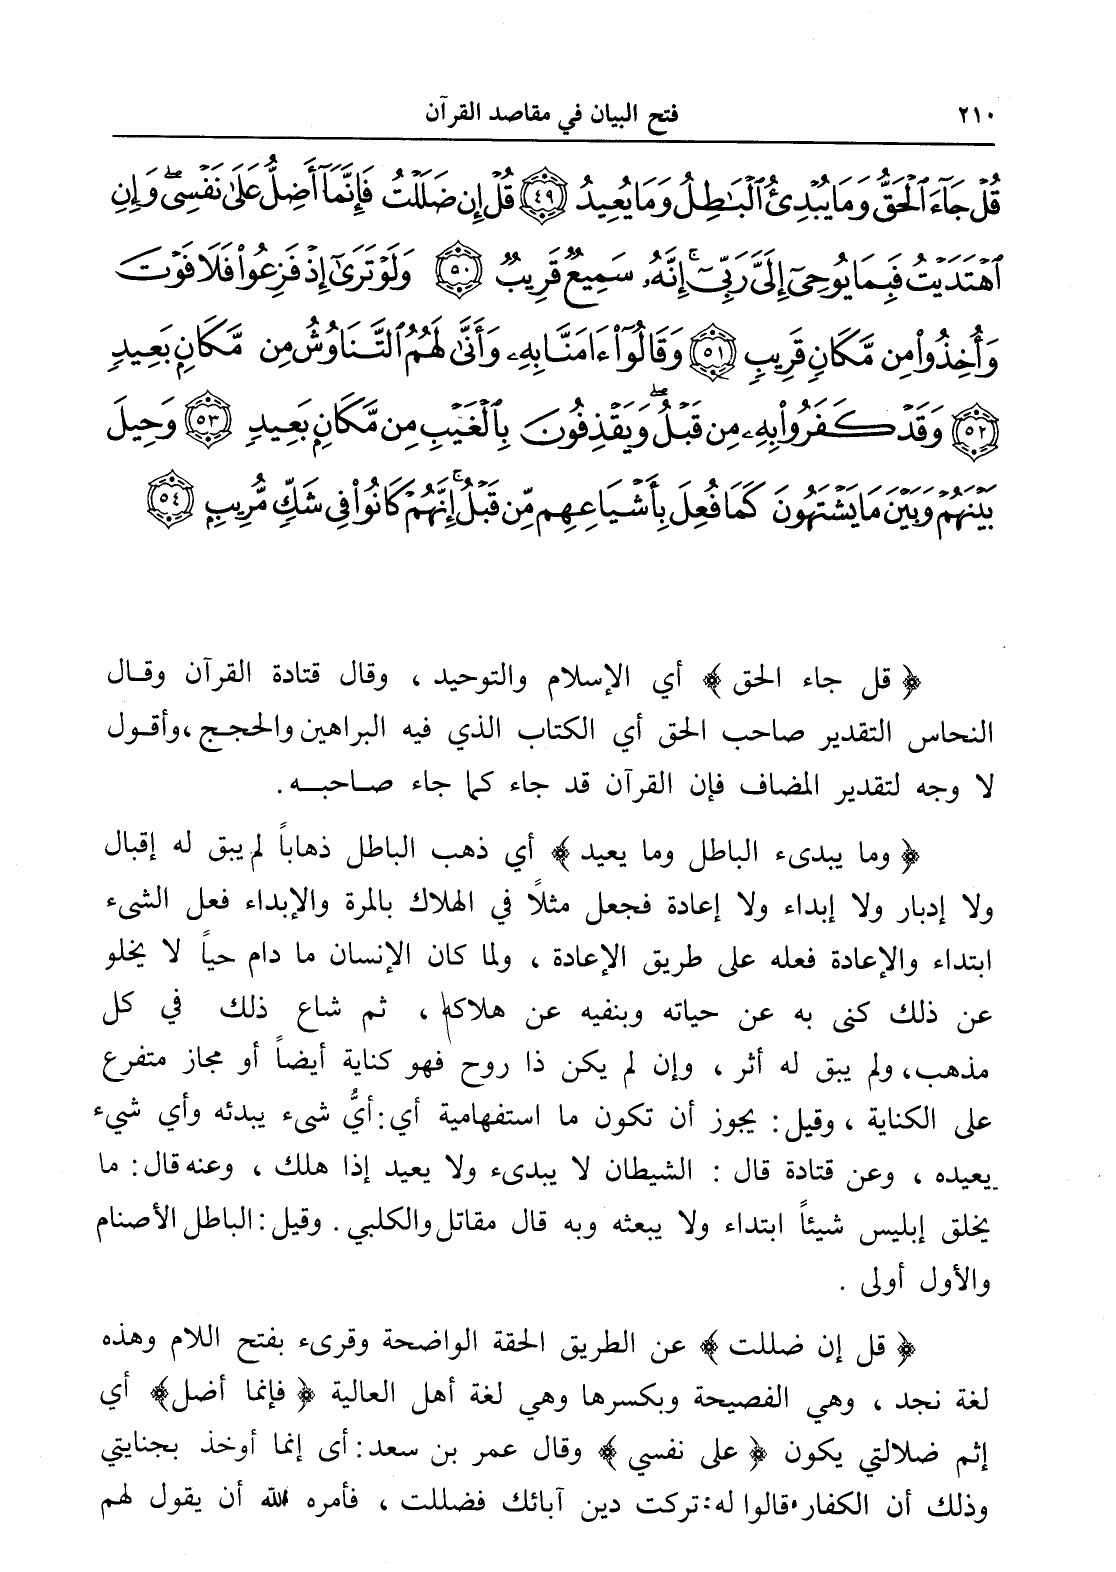 ٢١٠
فتح البيان في مقاصد القرآن
قُلۡ جَآءَ ٱلۡحَقُّ وَمَا يُبۡدِئُ ٱلۡبَٰطِلُ وَمَا يُعِيدُ ﴿٤٩﴾ قُلۡ إِن ضَلَلۡتُ فَإِنَّمَآ أَضِلُّ عَلَىٰ نَفۡسِيۖ وَإِنِ
ٱهۡتَدَيۡتُ فَبِمَا يُوحِيٓ إِلَيَّ رَبِّيٓۚ إِنَّهُۥ سَمِيعٞ قَرِيبٞ ﴿٥٠﴾ وَلَوۡ تَرَىٰٓ إِذۡ فَزِعُواْ فَلَا فَوۡتَ
وَأُخِذُواْ مِن مَّكَانٖ قَرِيبٖ ﴿٥١﴾ وَقَالُوٓاْ ءَامَنَّا بِهِۦ وَأَنَّىٰ لَهُمُ ٱلتَّنَاوُشُ مِن مَّكَانِۭ بَعِيدٖ
﴿٥٢﴾ وَقَدۡ كَفَرُواْ بِهِۦ مِن قَبۡلُۖ وَيَقۡذِفُونَ بِٱلۡغَيۡبِ مِن مَّكَانِۭ بَعِيدٖ ﴿٥٣﴾ وَحِيلَ
بَيۡنَهُمۡ وَبَيۡنَ مَا يَشۡتَهُونَ كَمَا فُعِلَ بِأَشۡيَاعِهِم مِّن قَبۡلُۚ إِنَّهُمۡ كَانُواْ فِي شَكّٖ مُّرِيبِۭ ﴿٥٤﴾
﴿ قل جاء الحق ﴾ أي الإسلام والتوحيد ، وقال قتادة القرآن وقال
النحاس التقدير صاحب الحق أي الكتاب الذي فيه البراهين والحجج ،وأقول
لا وجه لتقدير المضاف فإن القرآن قد جاء كما جاء صاحبه .
﴿ وما يبدىء الباطل وما يعيد ﴾ أي ذهب الباطل ذهاباً لم يبق له إقبال
ولا إدبار ولا إبداء ولا إعادة فجعل مثلاً في الهلاك بالمرة والإبداء فعل الشىء
ابتداء والإعادة فعله على طريق الإعادة ، ولما كان الإنسان ما دام حياً لا يخلو
عن ذلك كنى به عن حياته وبنفيه عن هلاكه ، ثم شاع ذلك في كل
مذهب، ولم يبق له أثر ، وإن لم يكن ذا روح فهو كناية أيضاً أو مجاز متفرع
على الكناية ، وقيل: يجوز أن تكون ما استفهامية أي: أيُّ شىء يبدئه وأي شيء
يعيده ، وعن قتادة قال : الشيطان لا يبدىء ولا يعيد إذا هلك ، وعنه قال: ما
يخلق إبليس شيئاً ابتداء ولا يبعثه وبه قال مقاتل والكلبي . وقيل: الباطل الأصنام
والأول أولى .
﴿ قل إن ضللت ﴾ عن الطريق الحقة الواضحة وقرىء بفتح اللام وهذه
لغة نجد ، وهي الفصيحة وبكسرها وهي لغة أهل العالية ﴿ فإنما أضل ﴾ أي
إثم ضلالتي يكون ﴿ على نفسي ﴾ وقال عمر بن سعد: أى إنما أوخذ بجنايتي
وذلك أن الكفار قالوا له: تركت دين آبائك فضللت ، فأمره الله أن يقول لهم